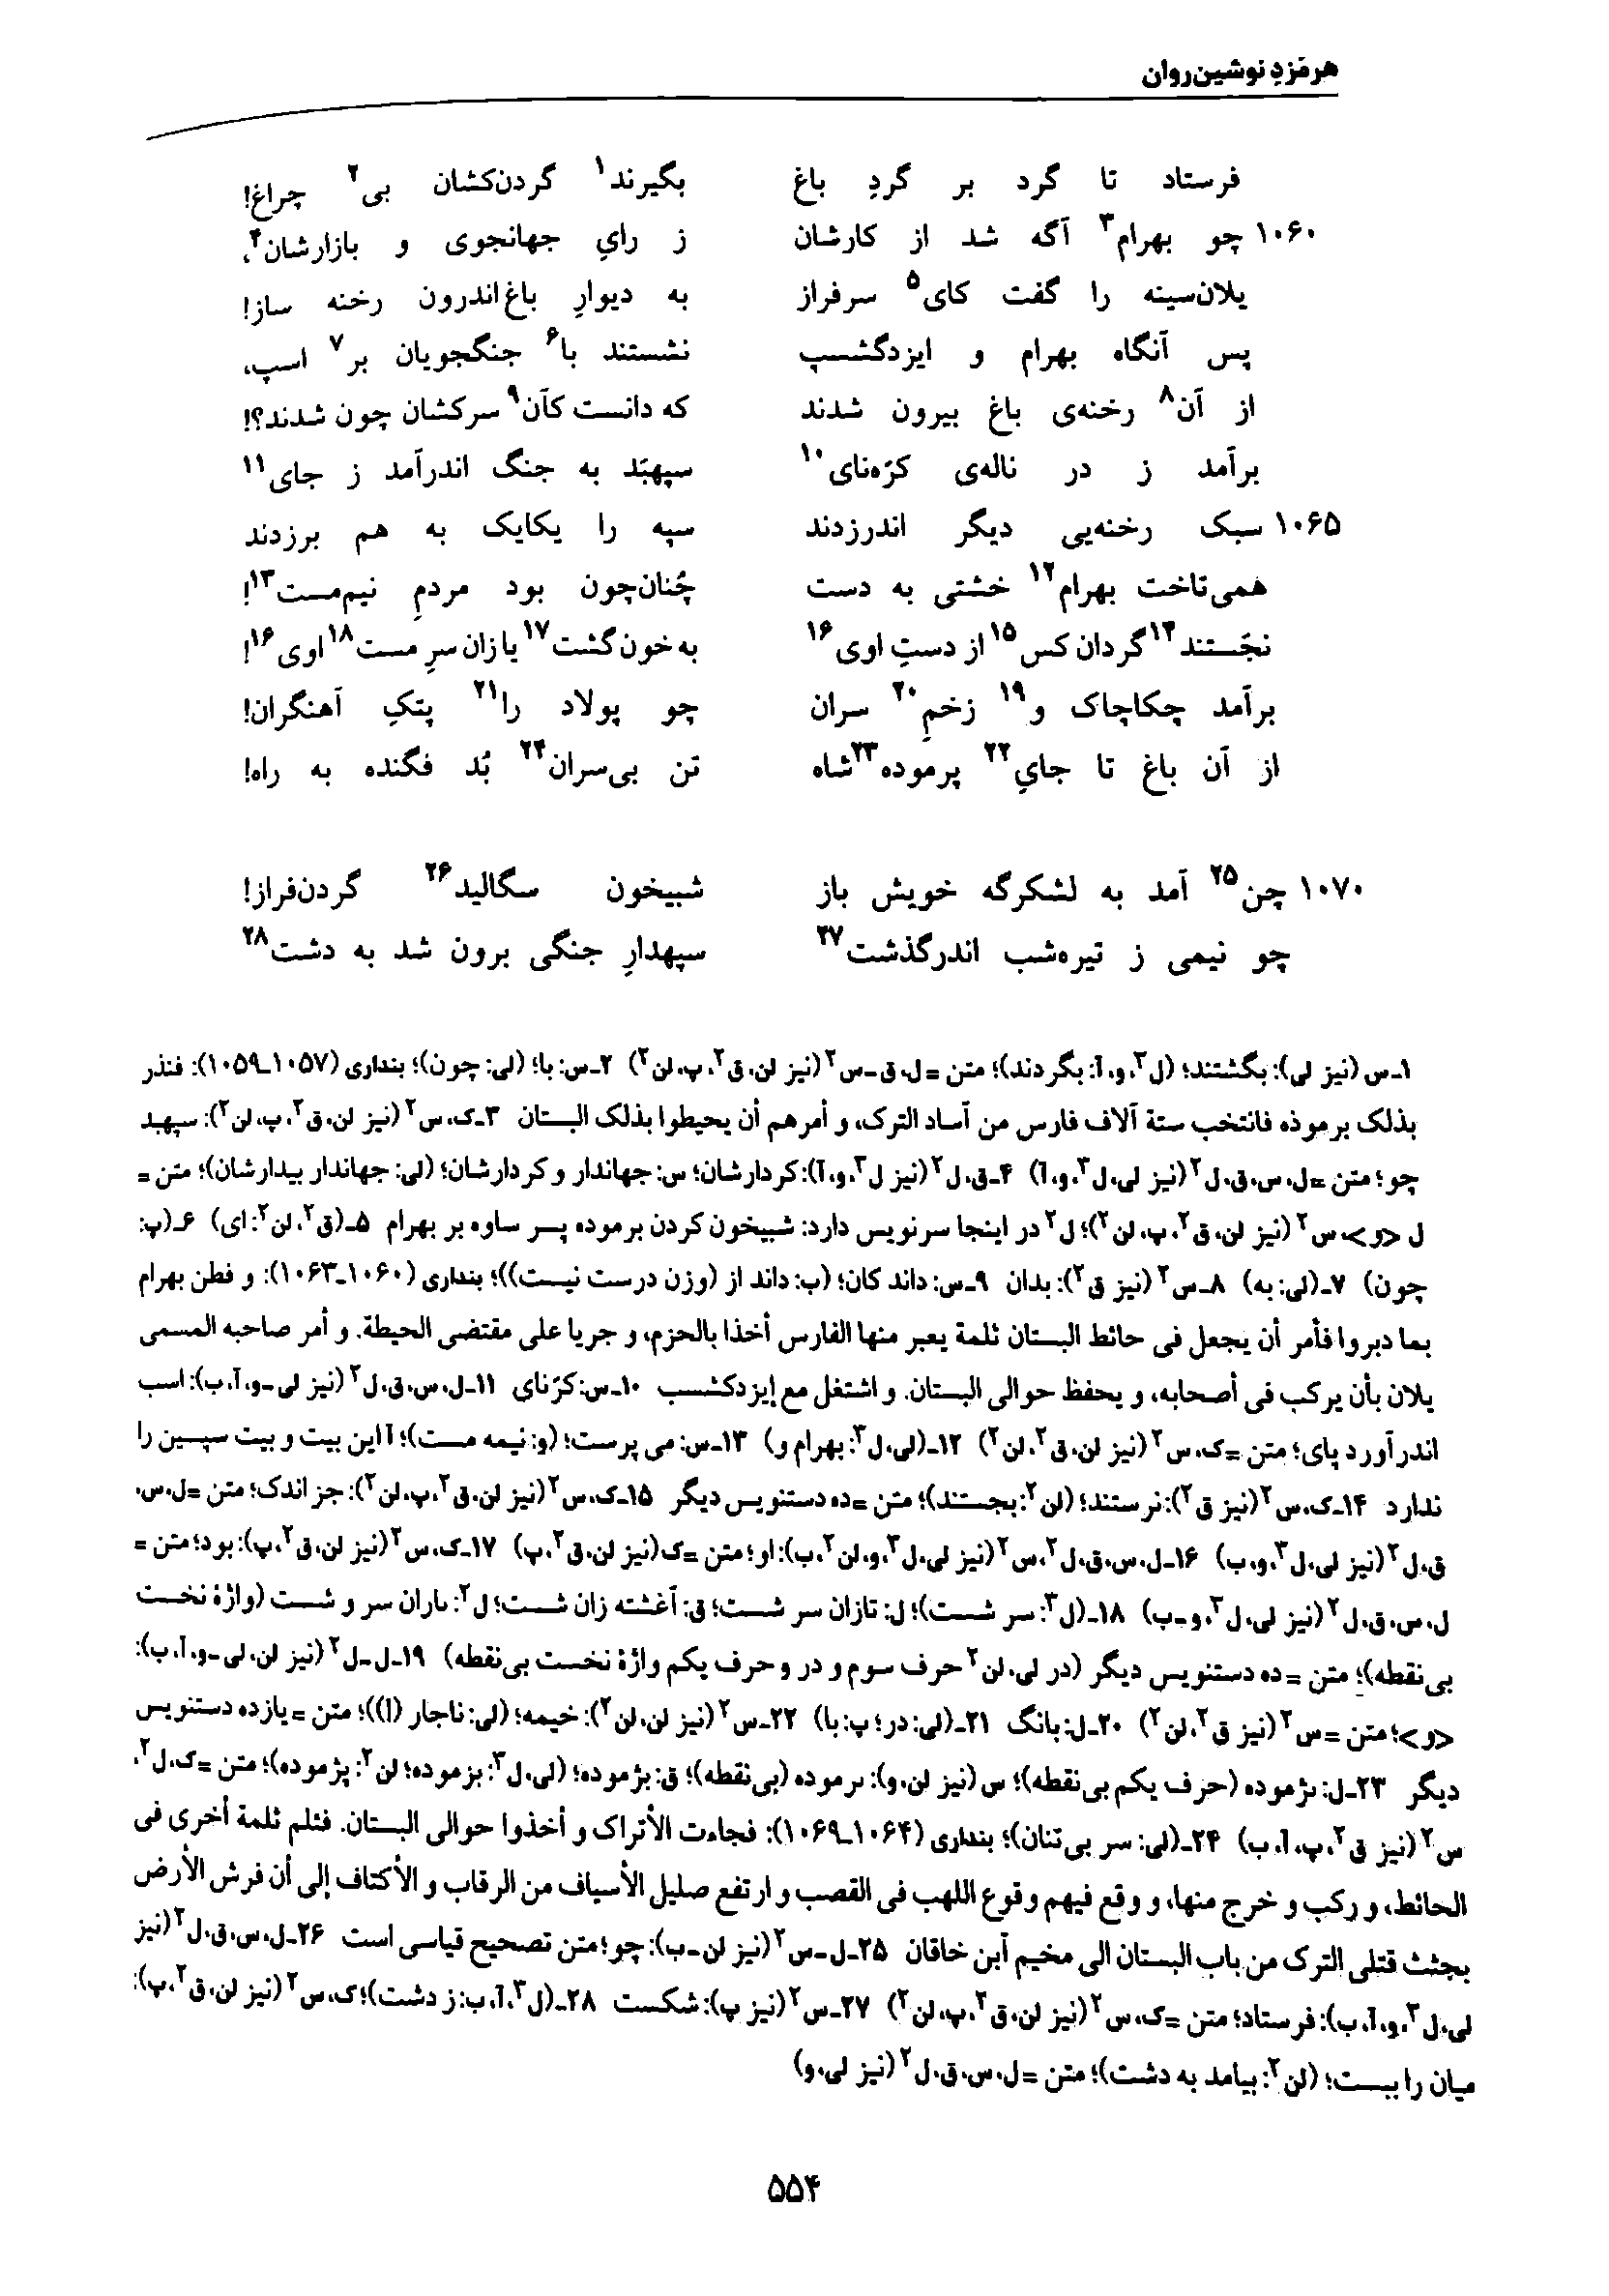 هرمزدِ نوشین‌روان
فرستاد تا گرد بر گردِ باغ بگیرند۱ گردن‌کشان بی۲ چراغ!
۱۰۶۰ چو بهرام۳ آگه شد از کارشان ز رایِ جهانجوی و بازارشان۴،
یلان‌سینه را گفت کای۵ سرفراز به دیوارِ باغ‌اندرون رخنه ساز!
پس آنگاه بهرام و ایزدگشسپ نشستند با۶ جنگجویان بر۷ اسپ،
از آن۸ رخنه‌ی باغ بیرون شدند که دانست کآن۹ سرکشان چون شدند؟!
برآمد ز در ناله‌ی کرّه‌نای۱۰ سپهبَد به جنگ اندرآمد ز جای۱۱
۱۰۶۵ سبک رخنه‌یی دیگر اندرزدند سپه را یکایک به هم برزدند
همی‌تاخت بهرام۱۲ خشتی به دست چُنان‌چون بود مردمِ نیم‌مست۱۳!
نجَستند۱۴ گردان کس۱۵ از دستِ اوی۱۶ به خون گشت۱۷ یازان سرِ مست۱۸ اوی۱۶!
برآمد چکاچاک و۱۹ زخمِ۲۰ سران چو پولاد را۲۱ پتکِ آهنگران!
از آن باغ تا جایِ۲۲ پرموده۲۳ شاه تن بی‌سران۲۴ بُد فگنده به راه!
۱۰۷۰ چن۲۵ آمد به لشکرگه خویش باز شبیخون سگالید۲۶ گردن‌فراز!
چو نیمی ز تیره‌شب اندرگذشت۲۷ سپهدارِ جنگی برون شد به دشت۲۸
۱ـ س (نیز لی): بگشتند؛ (ل۳، و، آ: بگردند)؛ متن = ل، ق ـ س۲ (نیز لن، ق۲، پ، لن۲) ۲ـ س: با؛ (لی: چون)؛ بنداری (۱۰۵۷ـ۱۰۵۹): فنذر
بذلک برموذه فانتخب ستة آلاف فارس من آساد الترک، و أمرهم أن یحیطوا بذلک البستان ۳ـ ک، س۲ (نیز لن، ق۲، پ، لن۲): سپهبد
چو؛ متن = ل، س، ق، ل۲ (نیز لی، ل۳، و، آ) ۴ـ ق، ل۲ (نیز ل۳، و، آ): کردارشان؛ س: جهاندار و کردارشان؛ (لی: جهاندار بیدارشان)؛ متن =
ل <و>، س۲ (نیز لن، ق۲، پ، لن۲)؛ ل۲ در اینجا سرنویس دارد: شبیخون کردن برموده پسر ساوه بر بهرام ۵ـ (ق۲، لن۲: ای) ۶ـ (پ:
چون) ۷ـ (لی: به) ۸ـ س۲ (نیز ق۲): بدان ۹ـ س: داند کان؛ (ب: داند از (وزن درست نیست))؛ بنداری (۱۰۶۰ـ۱۰۶۳): و فطن بهرام
بما دبروا فأمر أن یجعل فی حائط البستان ثلمة یعبر منها الفارس أخذا بالحزم، و جریا علی مقتضی الحیطة. و أمر صاحبه المسمی
یلان بأن یرکب فی أصحابه، و یحفظ حوالی البستان. و اشتغل مع إیزدکشسب ۱۰ـ س: کرّنای ۱۱ـ ل، س، ق، ل۲ (نیز لی ـ و، آ، ب): اسب
اندر آورد پای؛ متن = ک، س۲ (نیز لن، ق۲، لن۲) ۱۲ـ (لی، ل۳: بهرام و) ۱۳ـ س: می پرست؛ (و: نیمه مست)؛ آ این بیت و بیت سپسین را
ندارد ۱۴ـ ک، س۲ (نیز ق۲): نرستند؛ (لن۲: بجستند)؛ متن = ده دستنویس دیگر ۱۵ـ ک، س۲ (نیز لن، ق۲، پ، لن۲): جز اندک؛ متن = ل، س،
ق، ل۲ (نیز لی، ل۳، و، ب) ۱۶ـ ل، س، ق، ل۲، س۲ (نیز لی، ل۳، و، لن۲، ب): او؛ متن = ک (نیز لن، ق۲، پ) ۱۷ـ ک، س۲ (نیز لن، ق۲، پ): بود؛ متن =
ل، س، ق، ل۲ (نیز لی، ل۳، و ـ ب) ۱۸ـ (ل۳: سر شست)؛ ل: تازان سر شست؛ ق: آغشته زان شست؛ ل۲: باران سر و شست (واژهٔ نخست
بی‌نقطه)؛ متن = ده دستنویس دیگر (در لی، لن۲ حرف سوم و در و حرف یکم واژهٔ نخست بی‌نقطه) ۱۹ـ ل ـ ل۲ (نیز لن، لی ـ و، آ، ب):
<و>؛ متن = س۲ (نیز ق۲، لن۲) ۲۰ـ ل: بانگ ۲۱ـ (لی: در؛ پ: با) ۲۲ـ س۲ (نیز لن، لن۲): خیمه؛ (لی: ناجار (!))؛ متن = یازده دستنویس
دیگر ۲۳ـ ل: بژموده (حرف یکم بی‌نقطه)؛ س (نیز لن، و): برموده (بی‌نقطه)؛ ق: بژموده؛ (لی، ل۳: بزموده؛ لن۲: پژموده)؛ متن = ک، ل۲،
س۲ (نیز ق۲، پ، آ، ب) ۲۴ـ (لی: سر بی‌تنان)؛ بنداری (۱۰۶۴ـ۱۰۶۹): فجاءت الأتراک و أخذوا حوالی البستان. فثلم ثلمة أخری فی
الحائط، و رکب و خرج منها، و وقع فیهم وقوع اللهب فی القصب و ارتفع صلیل الأسیاف من الرقاب و الأکتاف إلی أن فرش الأرض
بجثث قتلی الترک من باب البستان الی مخیم آبن خاقان ۲۵ـ ل ـ س۲ (نیز لن ـ ب): چو؛ متن تصحیح قیاسی است ۲۶ـ ل، س، ق، ل۲ (نیز
لی، ل۳، و، آ، ب): فرستاد؛ متن = ک، س۲ (نیز لن، ق۲، پ، لن۲) ۲۷ـ س۲ (نیز پ): شکست ۲۸ـ (ل۳، آ، ب: ز دشت)؛ ک، س۲ (نیز لن، ق۲، پ):
میان را ببست؛ (لن۲: بیامد به دشت)؛ متن = ل، س، ق، ل۲ (نیز لی، و)
۵۵۴